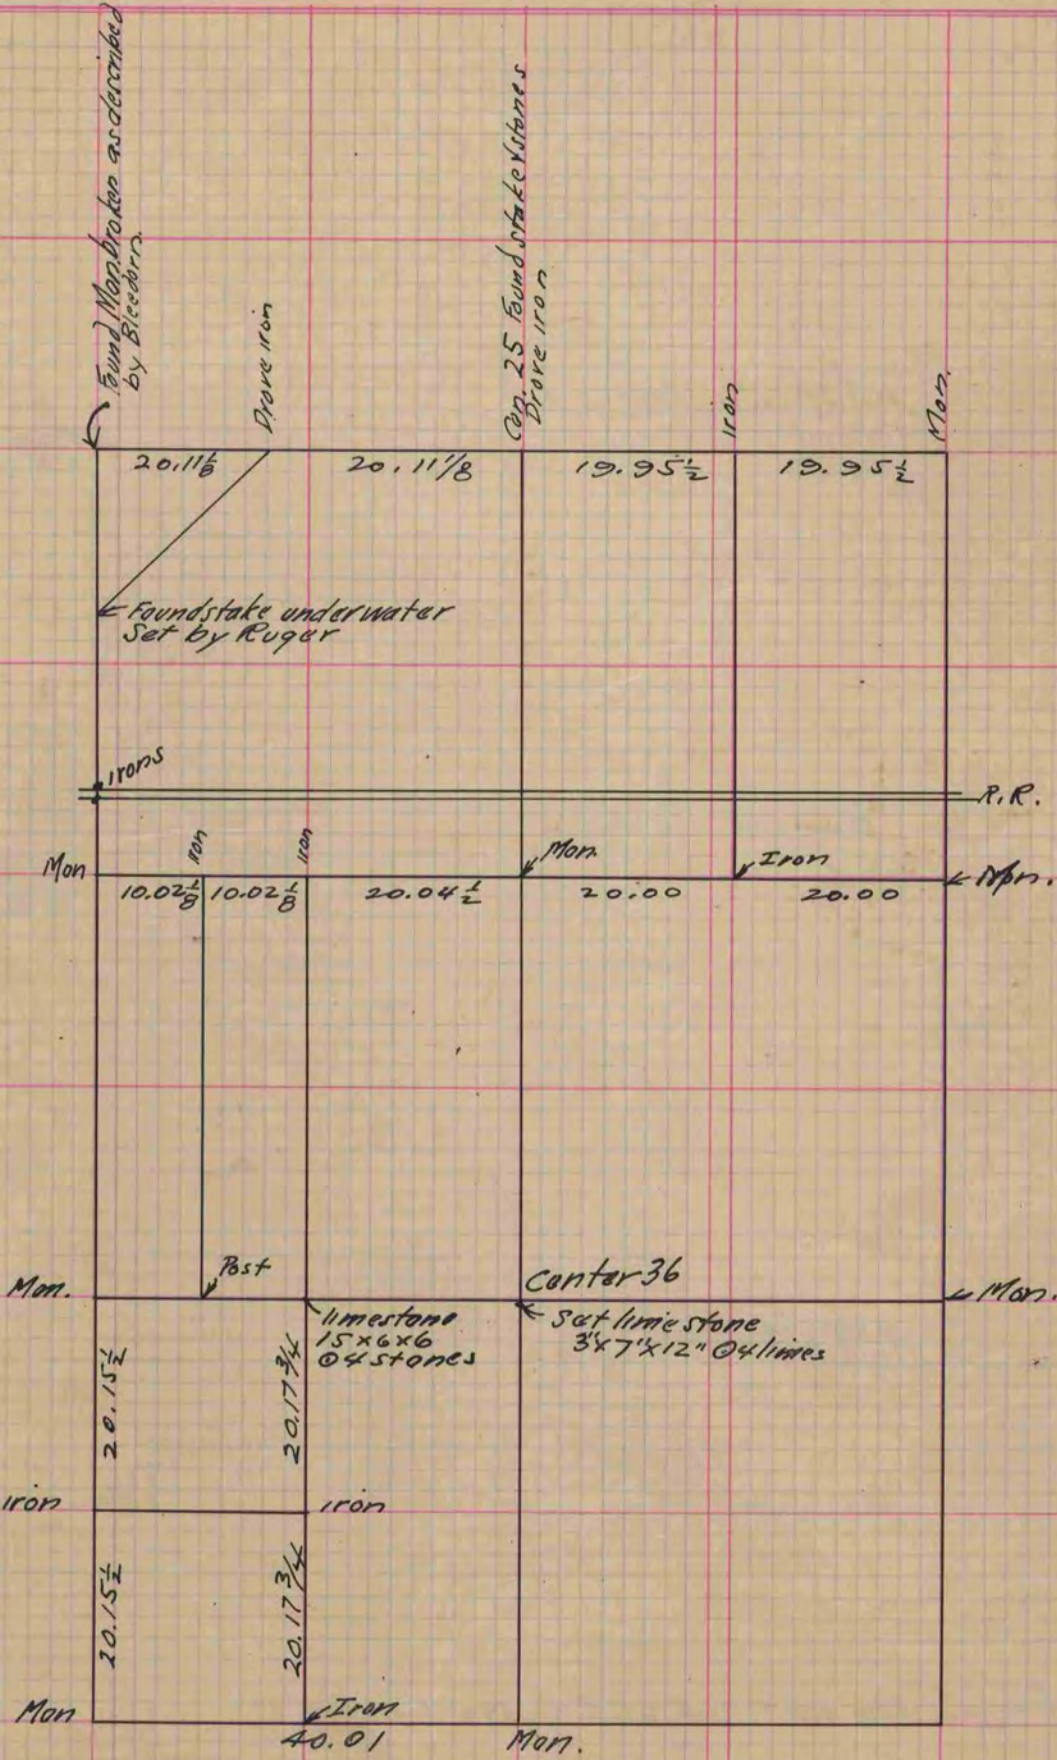 Found Mon. broken as described
by Bleedorn.
Drove iron
Cen. 25 Found stake & stones
Drove iron
iron
Mon.
20.11⅛
20.11 1/8
19.95½
19.95½
Found stake under water
Set by Ruger
irons
R.R.
Mon
iron
iron
Mon.
Iron
Mon.
10.02⅛
10.02⅛
20.04½
20.00
20.00
Post
Center 36
Mon.
Mon.
limestone
15x6x6
@4 stones
Set lime stone
3"x7"x12" @4 limes
20.15½
20.17¾
iron
iron
20.15½
20.17¾
Mon
Iron
40.01
Mon.